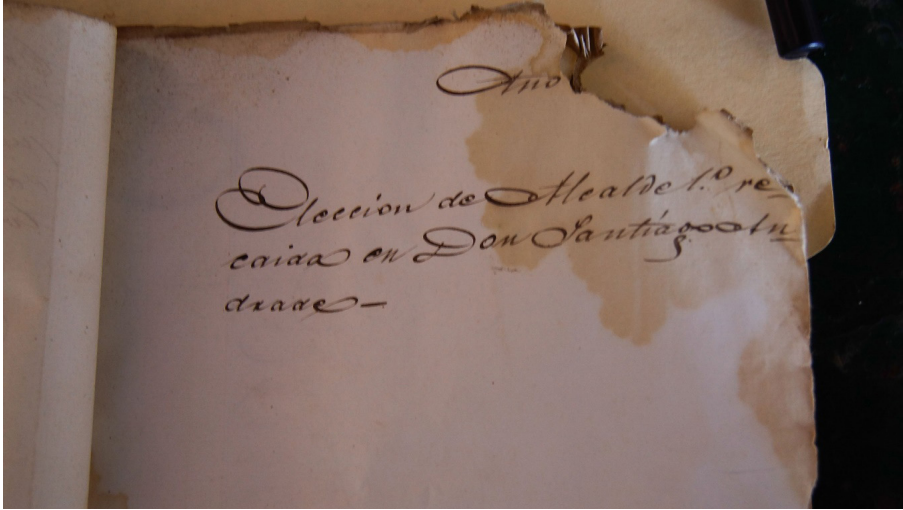 Año
Eleccion de Alcalde 1.º re-
caida en Don Santiágo An-
drade –